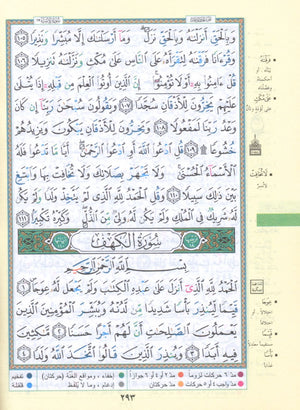 وَبِالْحَقِّ أَنزَلْنَاهُ وَبِالْحَقِّ نَزَلَ وَمَا أَرْسَلْنَاكَ إِلَّا مُبَشِّرًا وَنَذِيرًا ١٠٥
وَقُرْءَانًا فَرَقْنَاهُ لِتَقْرَأَهُ عَلَى النَّاسِ عَلَى مُكْثٍ وَنَزَّلْنَاهُ تَنزِيلًا ١٠٦
قُلْ ءَامِنُوا بِهِ أَوْ لَا تُؤْمِنُوا إِنَّ الَّذِينَ أُوتُوا الْعِلْمَ مِن قَبْلِهِ إِذَا يُتْلَى
عَلَيْهِمْ يَخِرُّونَ لِلْأَذْقَانِ سُجَّدًا ١٠٧ وَيَقُولُونَ سُبْحَانَ رَبِّنَا إِن كَانَ
وَعْدُ رَبِّنَا لَمَفْعُولًا ١٠٨ وَيَخِرُّونَ لِلْأَذْقَانِ يَبْكُونَ وَيَزِيدُهُمْ
خُشُوعًا ١٠٩ قُلِ ادْعُوا اللَّهَ أَوِ ادْعُوا الرَّحْمَنَ أَيًّا مَّا تَدْعُوا فَلَهُ
الْأَسْمَاءُ الْحُسْنَى وَلَا تَجْهَرْ بِصَلَاتِكَ وَلَا تُخَافِتْ بِهَا وَابْتَغِ
بَيْنَ ذَلِكَ سَبِيلًا ١١٠ وَقُلِ الْحَمْدُ لِلَّهِ الَّذِي لَمْ يَتَّخِذْ وَلَدًا وَلَمْ يَكُن
لَّهُ شَرِيكٌ فِي الْمُلْكِ وَلَمْ يَكُن لَّهُ وَلِيٌّ مِّنَ الذُّلِّ وَكَبِّرْهُ تَكْبِيرًا ١١١
سُورَةُ الْكَهْفِ
بِسْمِ اللَّهِ الرَّحْمَنِ الرَّحِيمِ
الْحَمْدُ لِلَّهِ الَّذِي أَنزَلَ عَلَى عَبْدِهِ الْكِتَابَ وَلَمْ يَجْعَل لَّهُ عِوَجًا ١
قَيِّمًا لِّيُنذِرَ بَأْسًا شَدِيدًا مِّن لَّدُنْهُ وَيُبَشِّرَ الْمُؤْمِنِينَ الَّذِينَ
يَعْمَلُونَ الصَّالِحَاتِ أَنَّ لَهُمْ أَجْرًا حَسَنًا ٢ مَّاكِثِينَ
فِيهِ أَبَدًا ٣ وَيُنذِرَ الَّذِينَ قَالُوا اتَّخَذَ اللَّهُ وَلَدًا ٤
٢٩٣